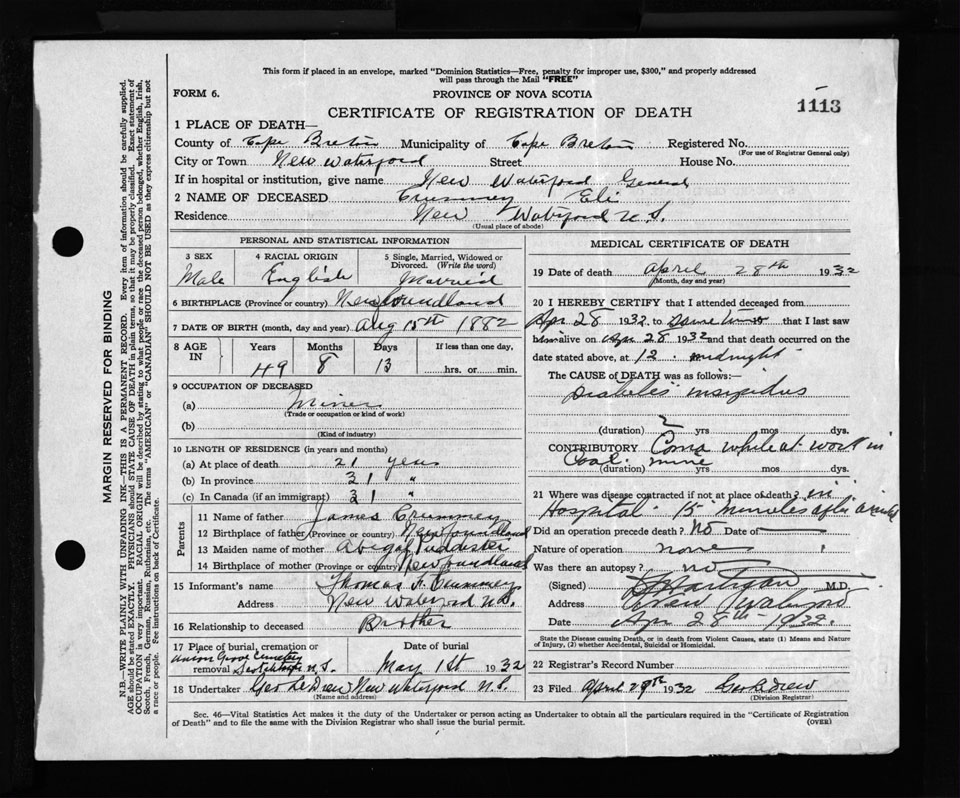 This form if placed in an envelope, marked "Dominion Statistics—Free, penalty for improper use, $300," and properly addressed
will pass through the Mail "FREE"
FORM 6.
PROVINCE OF NOVA SCOTIA
1113
CERTIFICATE OF REGISTRATION OF DEATH
1 PLACE OF DEATH—
County of Cape Breton Municipality of Cape Breton Registered No.
(For use of Registrar General only)
City or Town New Waterford Street House No.
If in hospital or institution, give name New Waterford General
2 NAME OF DECEASED Crummey Eli
Residence New Waterford N.S.
(Usual place of abode)
PERSONAL AND STATISTICAL INFORMATION
3 SEX 4 RACIAL ORIGIN 5 Single, Married, Widowed or
Divorced. (Write the word)
Male English Married
6 BIRTHPLACE (Province or country) Newfoundland
7 DATE OF BIRTH (month, day and year) Aug 15th 1882
8 AGE
IN
Years Months Days If less than one day,
49 8 13 hrs. or min.
9 OCCUPATION OF DECEASED
(a) Miner
(Trade or occupation or kind of work)
(b)
(Kind of industry)
10 LENGTH OF RESIDENCE (in years and months)
(a) At place of death 21 years
(b) In province 31 "
(c) In Canada (if an immigrant) 31 "
Parents
11 Name of father James Crummey
12 Birthplace of father (Province or country) Newfoundland
13 Maiden name of mother
14 Birthplace of mother (Province or country) Newfoundland
15 Informant's name Thomas F. Crummey
Address New Waterford N.S.
16 Relationship to deceased Brother
17 Place of burial, cremation or Date of burial
Union Grove Cemetery
removal N.S. May 1st 1932
18 Undertaker Geo LeDrew New Waterford N.S.
(Name and address)
MEDICAL CERTIFICATE OF DEATH
19 Date of death April 28th 1932
(Month, day and year)
20 I HEREBY CERTIFY that I attended deceased from
Apr 28 1932 to same time that I last saw
him alive on Apr 28 1932 and that death occurred on the
date stated above, at 12 midnight
The CAUSE of DEATH was as follows:—
Diabetes insipidus
(duration) 2 yrs mos dys.
CONTRIBUTORY Coma while at work in
Coal mine
(duration) yrs mos dys.
21 Where was disease contracted if not at place of death? in
Hospital 15 minutes after
Did an operation precede death? No Date of "
Nature of operation none "
Was there an autopsy? no
(Signed) M.D.
Address New Waterford
Date Apr 28th 1932
State the Disease causing Death, or in death from Violent Causes, state (1) Means and Nature
of Injury, (2) whether Accidental, Suicidal or Homicidal.
22 Registrar's Record Number
23 Filed April 29th 1932 Geo LeDrew
(Division Registrar)
Sec. 46—Vital Statistics Act makes it the duty of the Undertaker or person acting as Undertaker to obtain all the particulars required in the "Certificate of Registration
of Death" and to file the same with the Division Registrar who shall issue the burial permit.
(OVER)
MARGIN RESERVED FOR BINDING
N.B.—WRITE PLAINLY WITH UNFADING INK—THIS IS A PERMANENT RECORD. Every item of information should be carefully supplied.
AGE should be stated EXACTLY. PHYSICIANS should STATE CAUSE OF DEATH in plain terms, so that it may be properly classified. Exact statement of
OCCUPATION is very important. RACIAL ORIGIN will be described by stating to what people or race the deceased person belonged, whether English, Irish,
Scotch, French, German, Russian, Ruthenian, etc. The terms "AMERICAN" or "CANADIAN" SHOULD NOT BE USED as they express citizenship but not
a race or people. See instructions on back of Certificate.